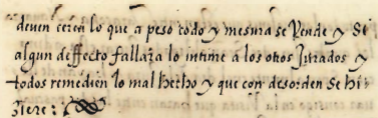 deven cercñ lo que a peso codo y mesura se Vende y si
algun deffecto fallara lo intime a los otros Jurados y
todos remedien lo mal hecho y que con desorden se hi-
ziere: